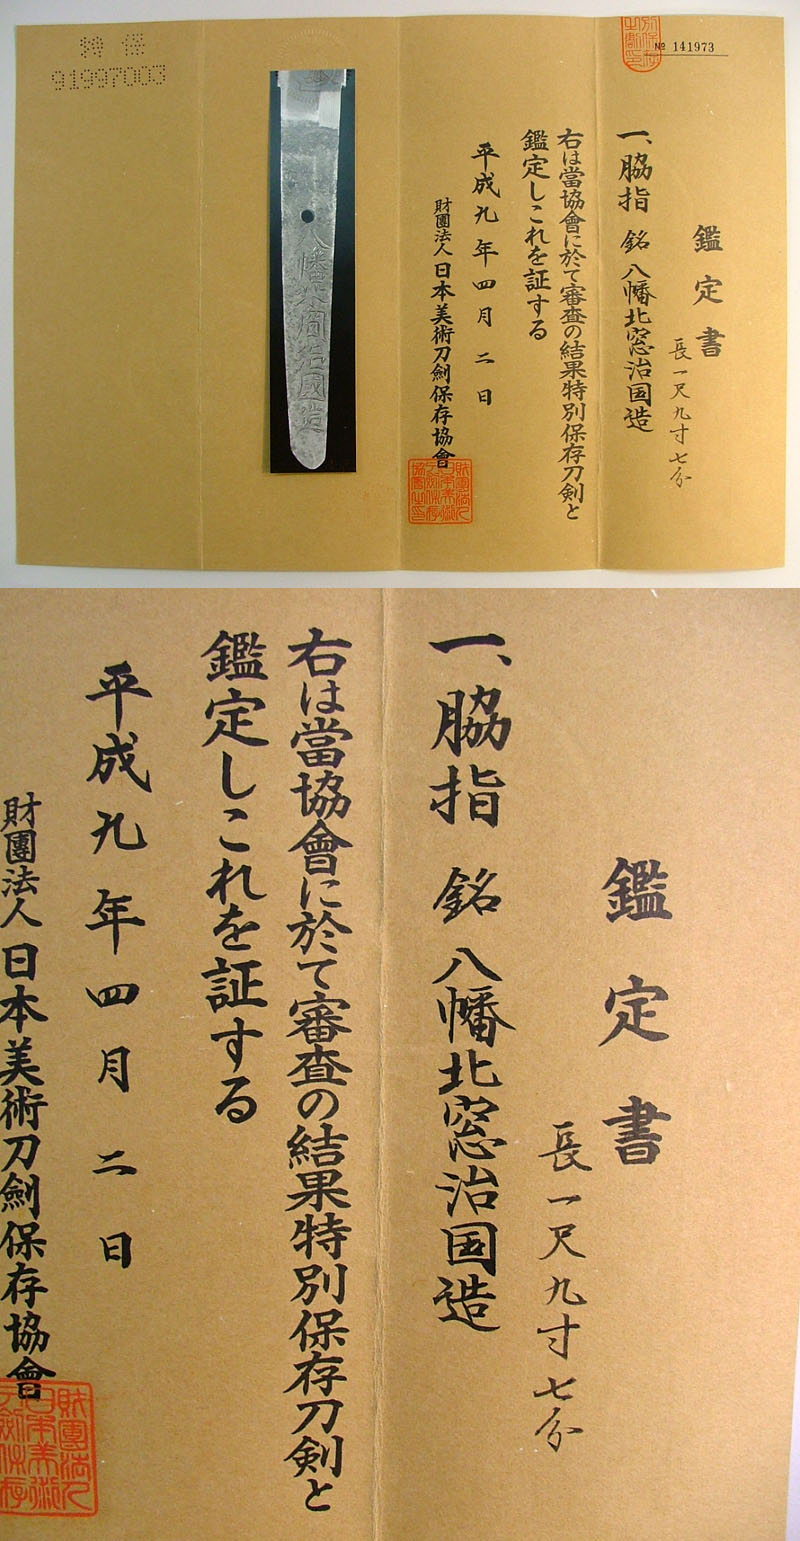 № 141973
鑑定書
長一尺九寸七分
一、脇指 銘 八幡北窓治国造
右は當協會に於て審査の結果特別保存刀剣と
鑑定しこれを証する
平成九年四月二日
財團法人日本美術刀劍保存協會
八幡北窗治國造
特保
91997003
鑑定書
長一尺九寸七分
一、脇指 銘 八幡北窓治国造
右は當協會に於て審査の結果特別保存刀剣と
鑑定しこれを証する
平成九年四月二日
財團法人日本美術刀劍保存協會